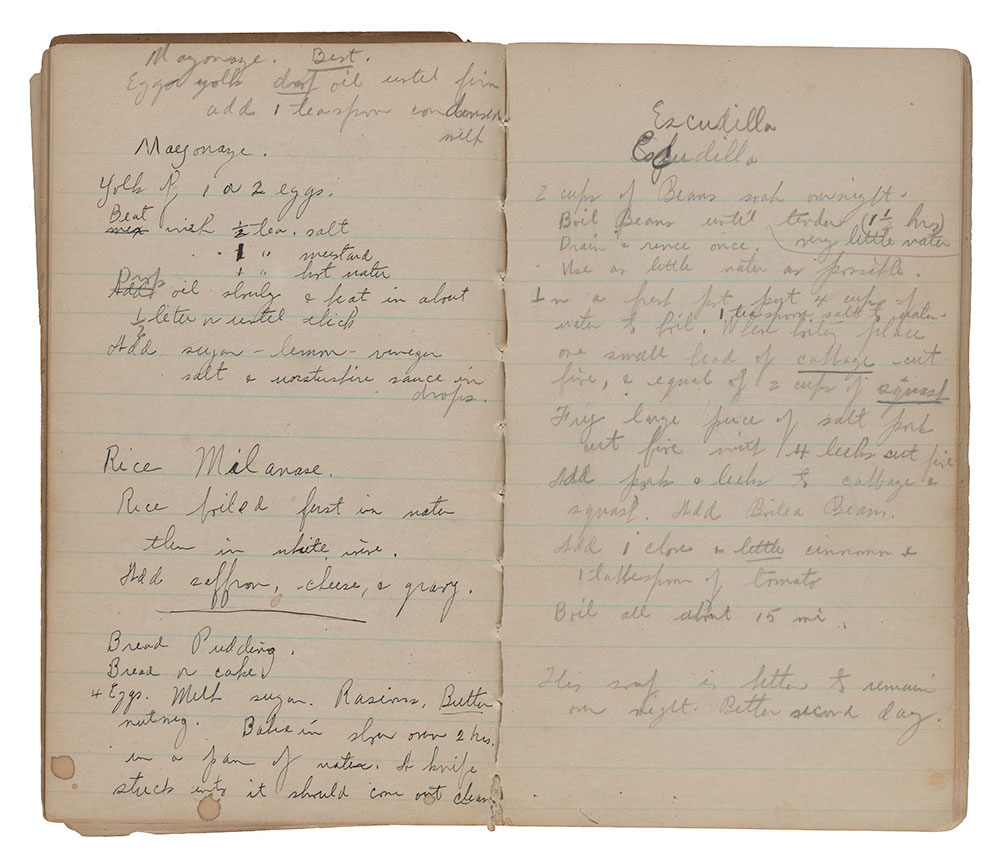 Mayonaze. Best.
Eggs yolk drop oil until firm
add 1 teaspoon condensed
milk
Mayonaze.
Yolk of 1 or 2 eggs.
Beat
mix with ½ tea. salt
1 " mustard
1 " hot water
Drops
Add oil slowly & beat in about
½ leter or until thick
Add sugar – lemon – vinegar
salt & worstushire sauce in
drops.
Rice Milanase.
Rice boiled first in water
then in white wine.
Add saffron, cheese, & gravy.
Bread Pudding.
Bread or cake
4 Eggs. Milk sugar. Rasions, Butter
nutmeg. Bake in slow oven 2 hrs.
in a pan of water. A knife
stuck into it should come out clean
Escudilla
Escudilla
2 cups of Beans soak overnight.
Boil Beans until tender (1½ hrs)
Drain & rence once. very little water
Use as little water as possible.
In a fresh pot put 4 cups of
1 teaspoon salt to water.
water to boil. When boiling place
one small head of cabbage cut
fine, & equal of 2 cups of squash
Fry large piece of salt pork
cut fine with 4 leeks cut fine
Add pork & leeks to cabbage &
squash. Add Boiled Beans.
Add 1 clove & little cinnamon &
1 tablespoon of tomato
Boil all about 15 mi.
This soup is better to remain
over night. Better second day.